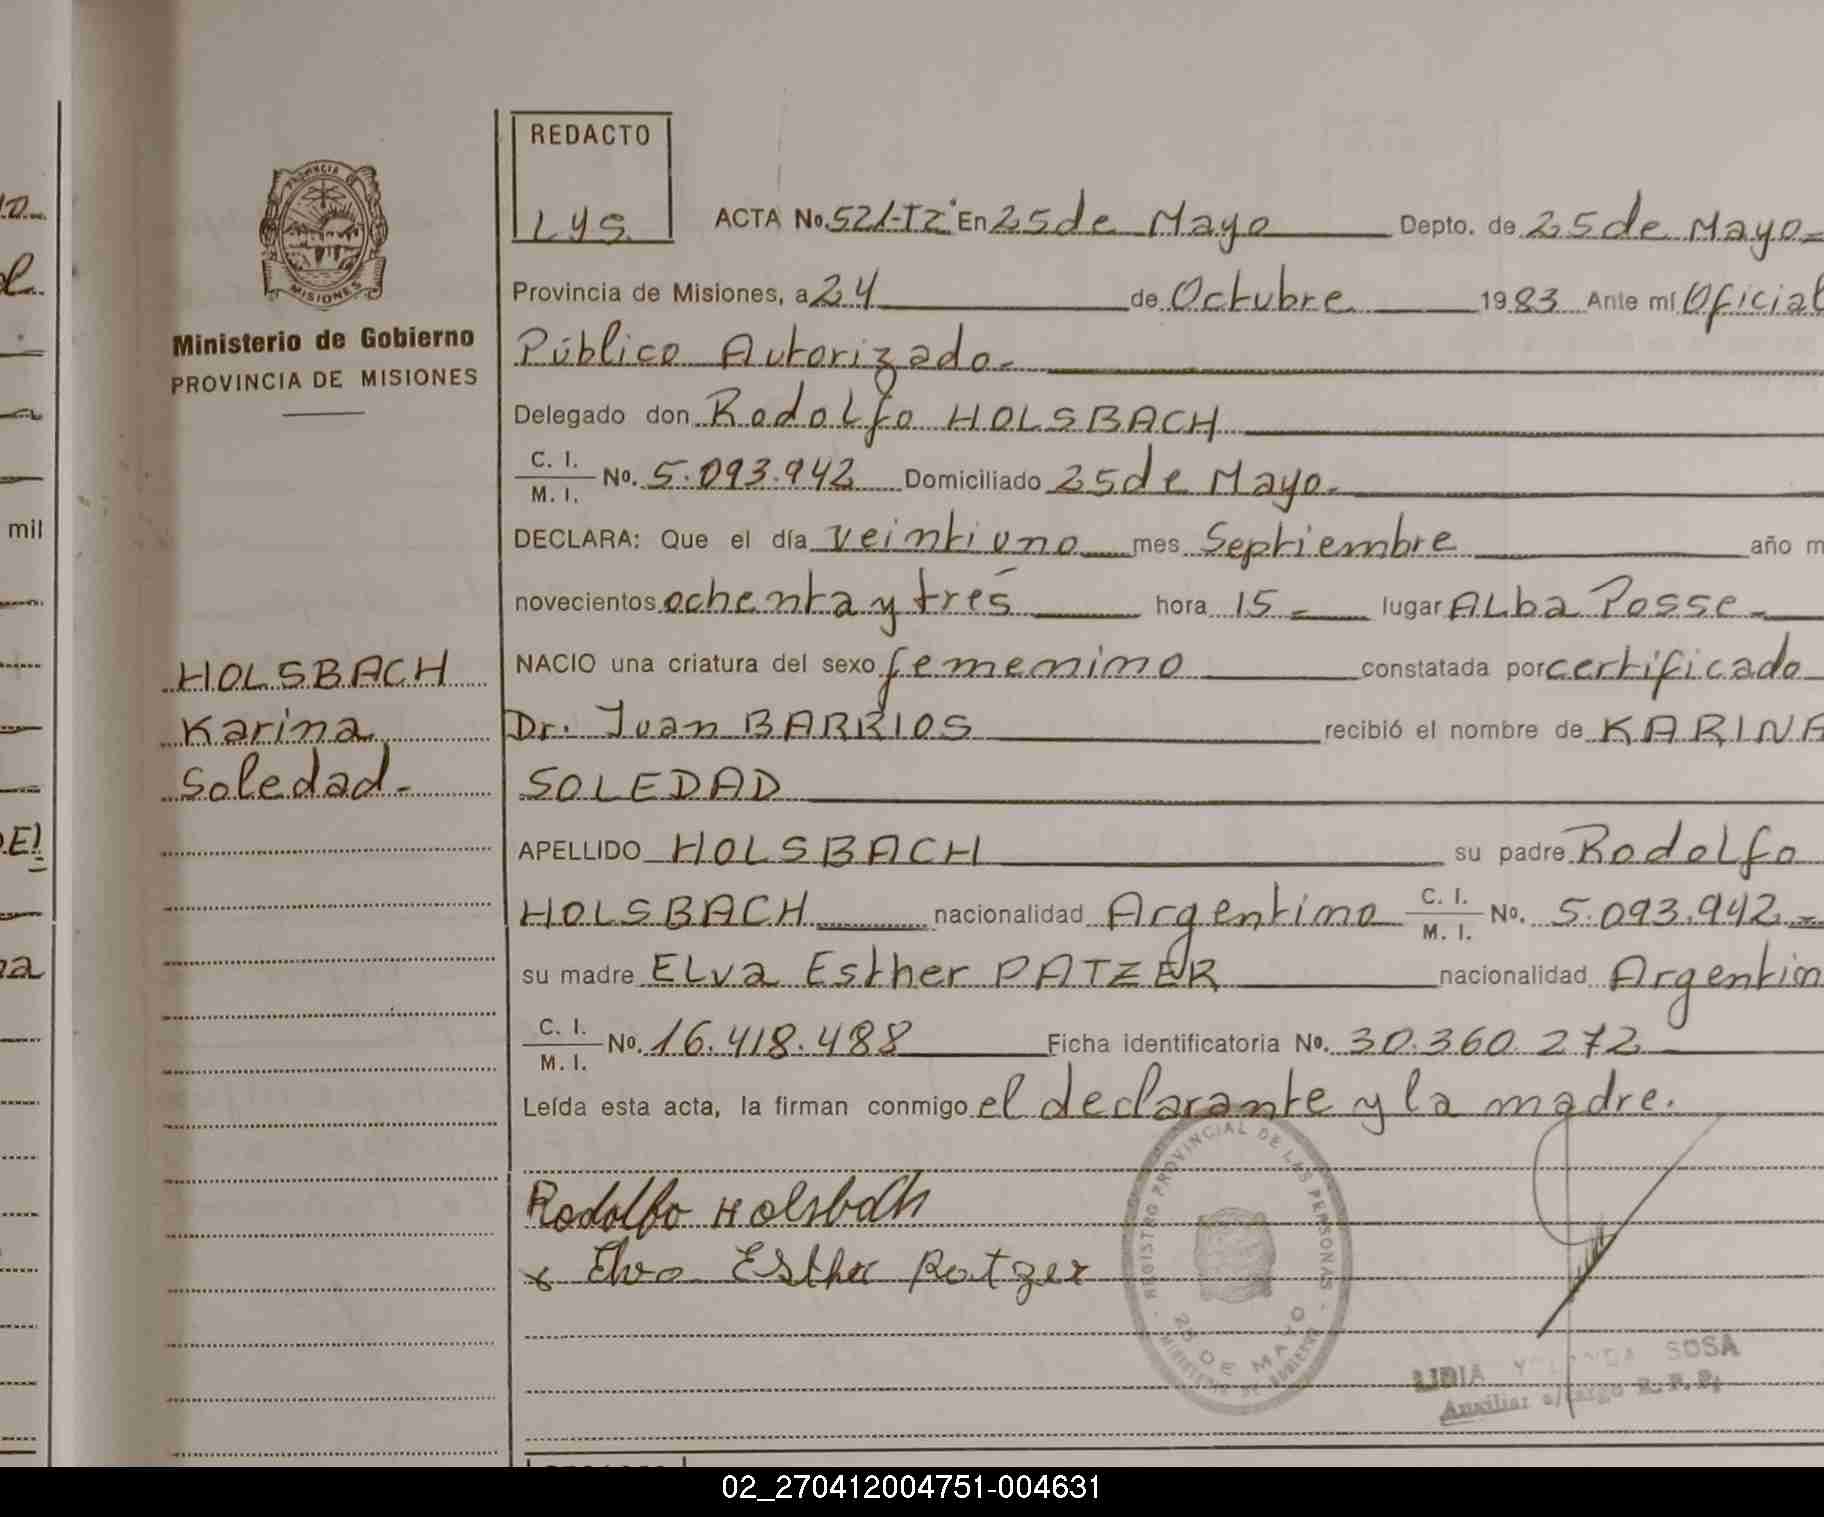 REDACTO
Lys.
ACTA No. 521-T2° En 25 de Mayo Depto. de 25 de Mayo-
Provincia de Misiones, a 24 de Octubre 1983 Ante mí Oficial
Público Autorizado.-
Delegado don Rodolfo HOLSBACH
C. I.
M. I.
No. 5.093.942 Domiciliado 25 de Mayo.-
DECLARA: Que el día veintiuno mes Septiembre año m
novecientos ochenta y trés hora 15 - lugar ALba Posse-
NACIO una criatura del sexo femenino constatada por certificado
Dr. Juan BARRIOS recibió el nombre de KARINA
SOLEDAD
APELLIDO HOLSBACH su padre Rodolfo
HOLSBACH nacionalidad Argentino C. I.
M. I.
No. 5.093.942-
su madre ELva Esther PATZER nacionalidad Argentin
C. I.
M. I.
No. 16.418.488 Ficha identificatoria No. 30.360.272
Leída esta acta, la firman conmigo el declarante y la madre.
Rodolfo Holsbach
x Elva Esther Patzer
REGISTRO PROVINCIAL DE LAS PERSONAS
25 DE MAYO
MINISTERIO DE GOBIERNO
LIDIA YOLANDA SOSA
Auxiliar a/cargo R. P. P.
PROVINCIA DE
MISIONES
Ministerio de Gobierno
PROVINCIA DE MISIONES
HOLSBACH
Karina
Soledad-
mil
02_270412004751-004631